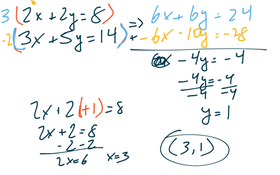 3(2x + 2y = 8) => 6x + 6y = 24
-2(3x + 5y = 14) + -6x - 10y = -28
-4y = -4
-4y = -4
-4 -4
y = 1
2x + 2(+1) = 8
2x + 2 = 8
-2 -2
2x = 6 x = 3
(3, 1)